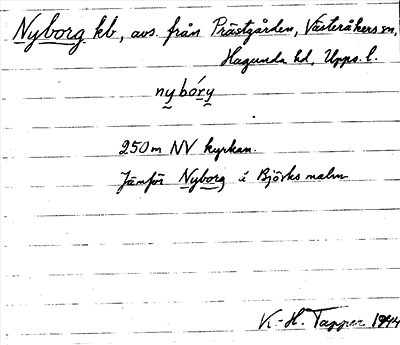 Nyborg kb, avs. från Prästgården, Västeråkers sn,
Hagunda hd, Upps. l.
nybóry
250 m NV kyrkan.
Jämför Nyborg i Björks malm
K.-H. Tapper 1944